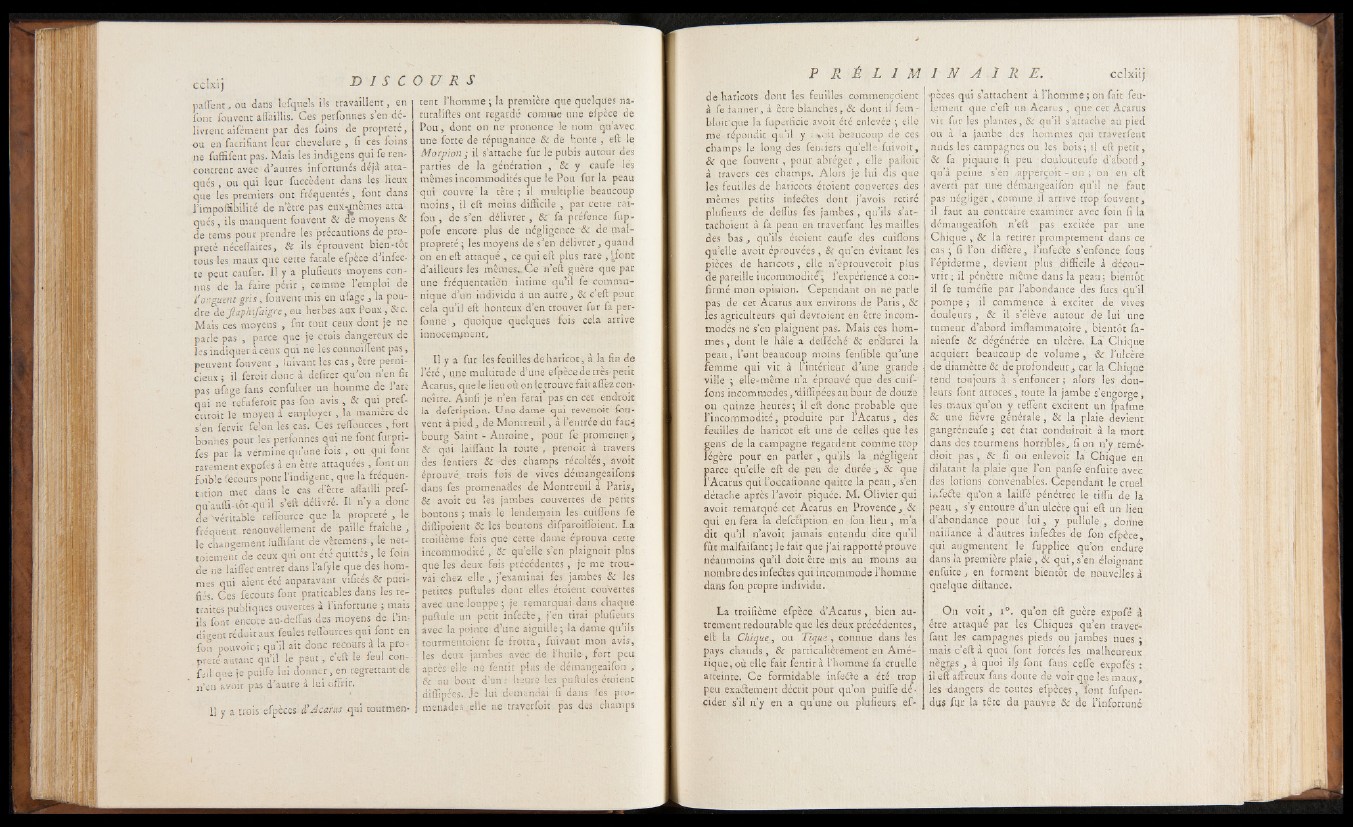 cclxij
DISCOURS
passent, ou dans lesquels ils travaillent, en
sont souvent assaillis. Ces personnes s'en dé-
livrent aisément par des soins de propreté,
ou en sacrifiant leur chevelure, si ces soins
ne suffisent pas. Mais les indigens qui se ren-
contrent avec d'autres infortunés déjà atta-
qués, ou qui leur succèdent dans les lieux
que les premiers ont fréquentés, sont dans
l'impossibilité de n'être pas eux-mêmes atta-
qués, ils manquent souvent & de moyens &
de tems pour prendre les précautions de pro-
preté nécessaires, & ils éprouvent bien-tôt
tous les maux que cette fatale espèce d'insec-
te peut causer. Il y a plusieurs moyens con-
nus de la faire périr, comme l'emploi de
l'onguent gris, souvent mis en usage, la pou-
dre de staphisaigre, ou herbes aux Poux, &c.
Mais ces moyens, sur tout ceux dont je ne
parle pas, parce que je crois dangereux de
les indiquer à ceux qui ne les connoissent pas,
peuvent souvent, suivant les cas, être perni-
cieux; il seroit donc à desirer qu'on n'en fit
pas usage sans consulter un homme de l'art
qui ne refuseroit pas son avis, & qui pres-
criroit le moyen à employer, la manière de
s'en servir selon les cas. Ces ressources, fort
bonnes pour les personnes qui ne sont surpri-
ses par la vermine qu'une fois, ou qui sont
rarement exposés à en être attaquées, sont un
foible secours pour l'indigent, que la fréquen-
tation met dans le cas d'être assailli pres-
qu'aussi-tôt qu'il s'est délivré. Il n'y a donc
de véritable ressource que la propreté, le
fréquent renouvellement de paille fraîche,
le changement suffisant de vêtemens, le net-
toiement de ceux qui ont été quittés, le soin
de ne laisser entrer dans l'asyle que des hom-
mes qui aient été auparavant visités & puri-
fiés. Ces secours sont praticables dans les re-
traites publiques ouvertes à l'infortune; mais
ils sont encore au-dessus des moyens de l'in-
digent réduit aux seules ressources qui sont en
son pouvoir; qu'il ait donc recours à la pro-
preté autant qu'il le peut, c'est le seul con-
seil que je puisse lui donner, en regrettant de
n'en avoir pas d'autre à lui offrir.
Il y a trois espèces d'Acarus qui tourmen-
tent l'homme; la première que quelques na-
turalistes ont regardé comme une espèce de
Pou, dont on ne prononce le nom qu'avec
une sorte de répugnance & de honte, est le
Morpion; il s'attache sur le pubis autour des
parties de la génération, & y cause les
mêmes incommodités que le Pou sur la peau
qui couvre la tête; il multiplie beaucoup
moins, il est moins difficile, par cette rai-
son, de s'en délivrer, & sa présence sup-
pose encore plus de négligence & de mal-
propreté; les moyens de s'en délivrer, quand
on en est attaqué, ce qui est plus rare, sont
d'ailleurs les mêmes. Ce n'est guère que par
une fréquentation intime qu'il se commu-
nique d'un individu à un autre, & c'est pour
cela qu'il est honteux d'en trouver sur sa per-
sonne, quoique quelques fois cela arrive
innocemment.
Il y a sur les feuilles de haricot, à la fin de
l'été, une multitude d'une espèce de très petit
Acarus, que le lieu où on le trouve fait assez con-
noître. Ainsi je n'en ferai pas en cet endroit
la description. Une dame qui revenoit sou-
vent à pied, de Montreuil, à l'entrée du faux-
bourg Saint-Antoine, pour se promener,
& qui laissant la route, prenoit à travers
des sentiers & des champs récoltés, avoit
éprouvé trois fois de vives démangeaisons
dans ses promenades de Montreuil à Paris,
& avoit eu les jambes couvertes de petits
boutons; mais le lendemain les cuissons se
dissipoient & les boutons disparoissoient. La
troisième fois que cette dame éprouva cette
incommodité, & qu'elle s'en plaignoit plus
que les deux fois précédentes, je me trou-
vai chez elle, j'examinai ses jambes & les
petites pustules dont elles étoient couvertes
avec une louppe; je remarquai dans chaque
pustule un petit insecte, j'en tirai plusieurs
avec la pointe d'une aiguille; la dame qu'ils
tourmentoient se frotta, suivant mon avis,
les deux jambes avec de l'huile, fort peu
après elle ne sentit plus de démangeaison,
& au bout d'une heure les pustules étoient
dissipées. Je lui demandai si dans ses pro-
menades elle ne traversoit pas des champs
PRÉLIMINAIRE.
cclxiij
de haricots dont les feuilles commençoient
à se fanner, à être blanches, & dont il sem-
bloit que la superficie avoit été enlevée; elle
me répondit qu'il y avoit beaucoup de ces
champs le long des sentiers qu'elle suivoit,
& que souvent, pour abréger, elle passoit
à travers ces champs. Alors je lui dis que
les feuilles de haricots étoient couvertes des
mêmes petits insectes dont j'avois retiré
plusieurs de dessus ses jambes, qu'ils s'at-
tachoient à sa peau en traversant les mailles
des bas, qu'ils étoient cause des cuissons
qu'elle avoit éprouvées, & qu'en évitant les
pièces de haricots, elle n'éprouveroit plus
de pareille incommodité; l'expérience a con-
firmé mon opinion. Cependant on ne parle
pas de cet Acarus aux environs de Paris, &
les agriculteurs qui devroient en être incom-
modés ne s'en plaignent pas. Mais ces hom-
mes, dont le hâle a desséché & endurci la
peau, l'ont beaucoup moins sensible qu'une
femme qui vit à l'intérieur d'une grande
ville; elle-même n'a éprouvé que des cuis-
sons incommodes, dissipées au bout de douze
ou quinze heures; il est donc probable que
l'incommodité, produite par l'Acarus, des
feuilles de haricot est une de celles que les
gens de la campagne regardent comme trop
légère pour en parler, qu'ils la négligent
parce qu'elle est de peu de durée, & que
l'Acarus qui l'occasionne quitte la peau, s'en
détache après l'avoir piquée. M. Olivier qui
avoit remarqué cet Acarus en Provence, &
qui en fera la description en son lieu, m'a
dit qu'il n'avoit jamais entendu dire qu'il
fût malfaisant; le fait que j'ai rapporté prouve
néanmoins qu'il doit être mis au moins au
nombre des insectes qui incommode l'homme
dans son propre individu.
La troisième espèce d'Acarus, bien au-
trement redoutable que les deux précédentes,
est la Chique, ou Tique, connue dans les
pays chauds, & particulièrement en Amé-
rique, où elle fait sentir à l'homme sa cruelle
atteinte. Ce formidable insecte a été trop
peu exactement décrit pour qu'on puisse dé-
cider s'il n'y en a qu'une ou plusieurs es-
pèces qui s'attachent à l'homme; on sait seu-
lement que c'est un Acarus, que cet Acarus
vit sur les plantes, & qu'il s'attache au pied
ou à la jambe des hommes qui traversent
nuds les campagnes ou les bois; il est petit,
& sa piquure si peu douloureuse d'abord,
qu'à peine s'en apperçoit-on; on en est
averti par une démangeaison qu'il ne faut
pas négliger, comme il arrive trop souvent,
il faut au contraire examiner avec soin si la
démangeaison n'est pas excitée par une
Chique, & la retirer promptement dans ce
cas; si l'on diffère, l'insecte s'enfonce sous
l'épiderme, devient plus difficile à décou-
vrir; il pénètre même dans la peau; bientôt
il se tuméfie par l'abondance des sucs qu'il
pompe; il commence à exciter de vives
douleurs, & il s'élève autour de lui une
tumeur d'abord inflammatoire, bientôt sa-
nieuse & dégénérée en ulcère. La Chique
acquiert beaucoup de volume, & l'ulcère
de diamètre & de profondeur, car la Chique
tend toujours à s'enfoncer; alors les dou-
leurs sont atroces, toute la jambe s'engorge,
les maux qu'on y ressent excitent un spasme
& une fièvre générale, & la plaie devient
gangréneuse; cet état conduiroit à la mort
dans des tourmens horribles, si on n'y remé-
dioit pas, & si on enlevoit la Chique en
dilatant la plaie que l'on panse ensuite avec
des lotions convenables. Cependant le cruel
insecte qu'on a laissé pénétrer le tissu de la
peau, s'y entoure d'un ulcère qui est un lieu
d'abondance pour lui, y pullule, donne
naissance à d'autres insectes de son espèce,
qui augmentent le supplice qu'on endure
dans la première plaie, & qui, s'en éloignant
ensuite, en forment bientôt de nouvelles à
quelque distance.
On voit, 1°. qu'on est guère exposé à
être attaqué par les Chiques qu'en traver-
sant les campagnes pieds ou jambes nues;
mais c'est à quoi sont forcés les malheureux
nègres, à quoi ils sont sans cesse exposés:
il est affreux sans doute de voir que les maux,
les dangers de toutes espèces, sont suspen-
dus sur la tête du pauvre & de l'infortuné